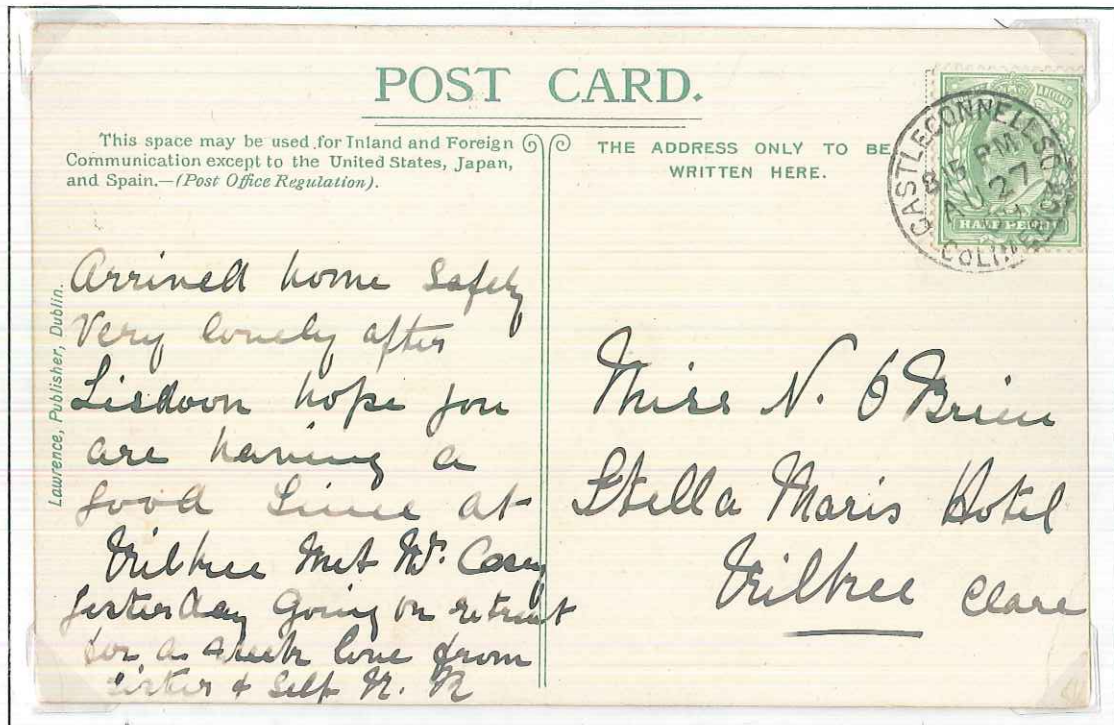 POST CARD.
This space may be used for Inland and Foreign
Communication except to the United States, Japan,
and Spain.—(Post Office Regulation).
THE ADDRESS ONLY TO BE
WRITTEN HERE.
CASTLECONNELL S.O
CO LIMERICK
815 PM
AU 27
HALF PENNY
Lawrence, Publisher, Dublin.
Arrived home safely
Very lonely after
Lisdoon hope you
are having a
good time at
Kilkee Met Mr. Casey
yesterday Going on retreat
for a week love from
sister & Self N. R
Miss N. O Brien
Stella Maris Hotel
Kilkee Clare